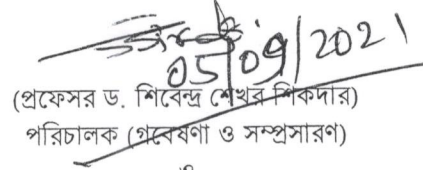 05/09/2021
(প্রফেসর ড. শিবেন্দ্র শেখর শিকদার)
পরিচালক (গবেষণা ও সম্প্রসারণ)